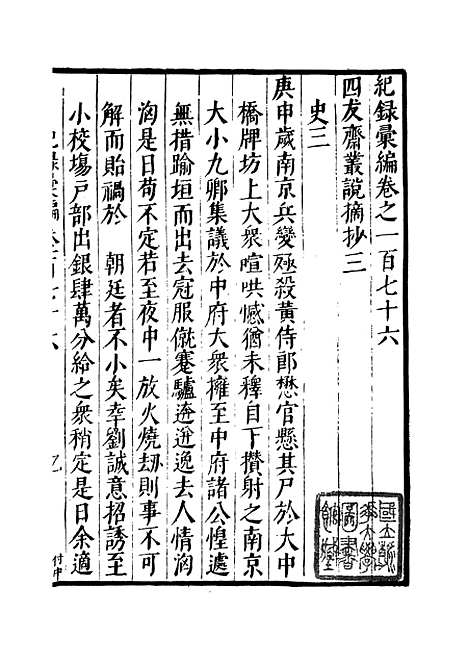 紀録彙編卷之一百七十六
四友齋叢說摘抄三
史三
庚申歲南京兵變殛殺黃侍郎懋官懸其尸於大中
橋牌坊上大衆喧哄憾猶未釋自下攢射之南京
大小九卿集議於中府大衆擁至中府諸公惶遽
無措踰垣而出去冠服僦蹇驢逩迸逸去人情洶
洶是日苟不定若至夜中一放火燒刼則事不可
解而貽禍於　朝廷者不小矣幸劉誠意招誘至
小校塲戸部出銀肆萬分給之衆稍定是日余適